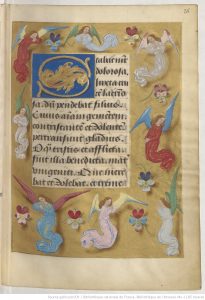 Stabat mater
dolorosa,
iuxta cru
cem lacrimo
sa. dum pendebat filius.
Cuius animam gementem
contristantem et dolentem
pertransiuit gladius.
O quam tristis et afflicta
fuit illa benedicta. mater
vnigeniti. Que mere
bat et dolebat. et treme
Source gallica.bnf.fr / Bibliothèque nationale de France. Bibliothèque de l'Arsenal.